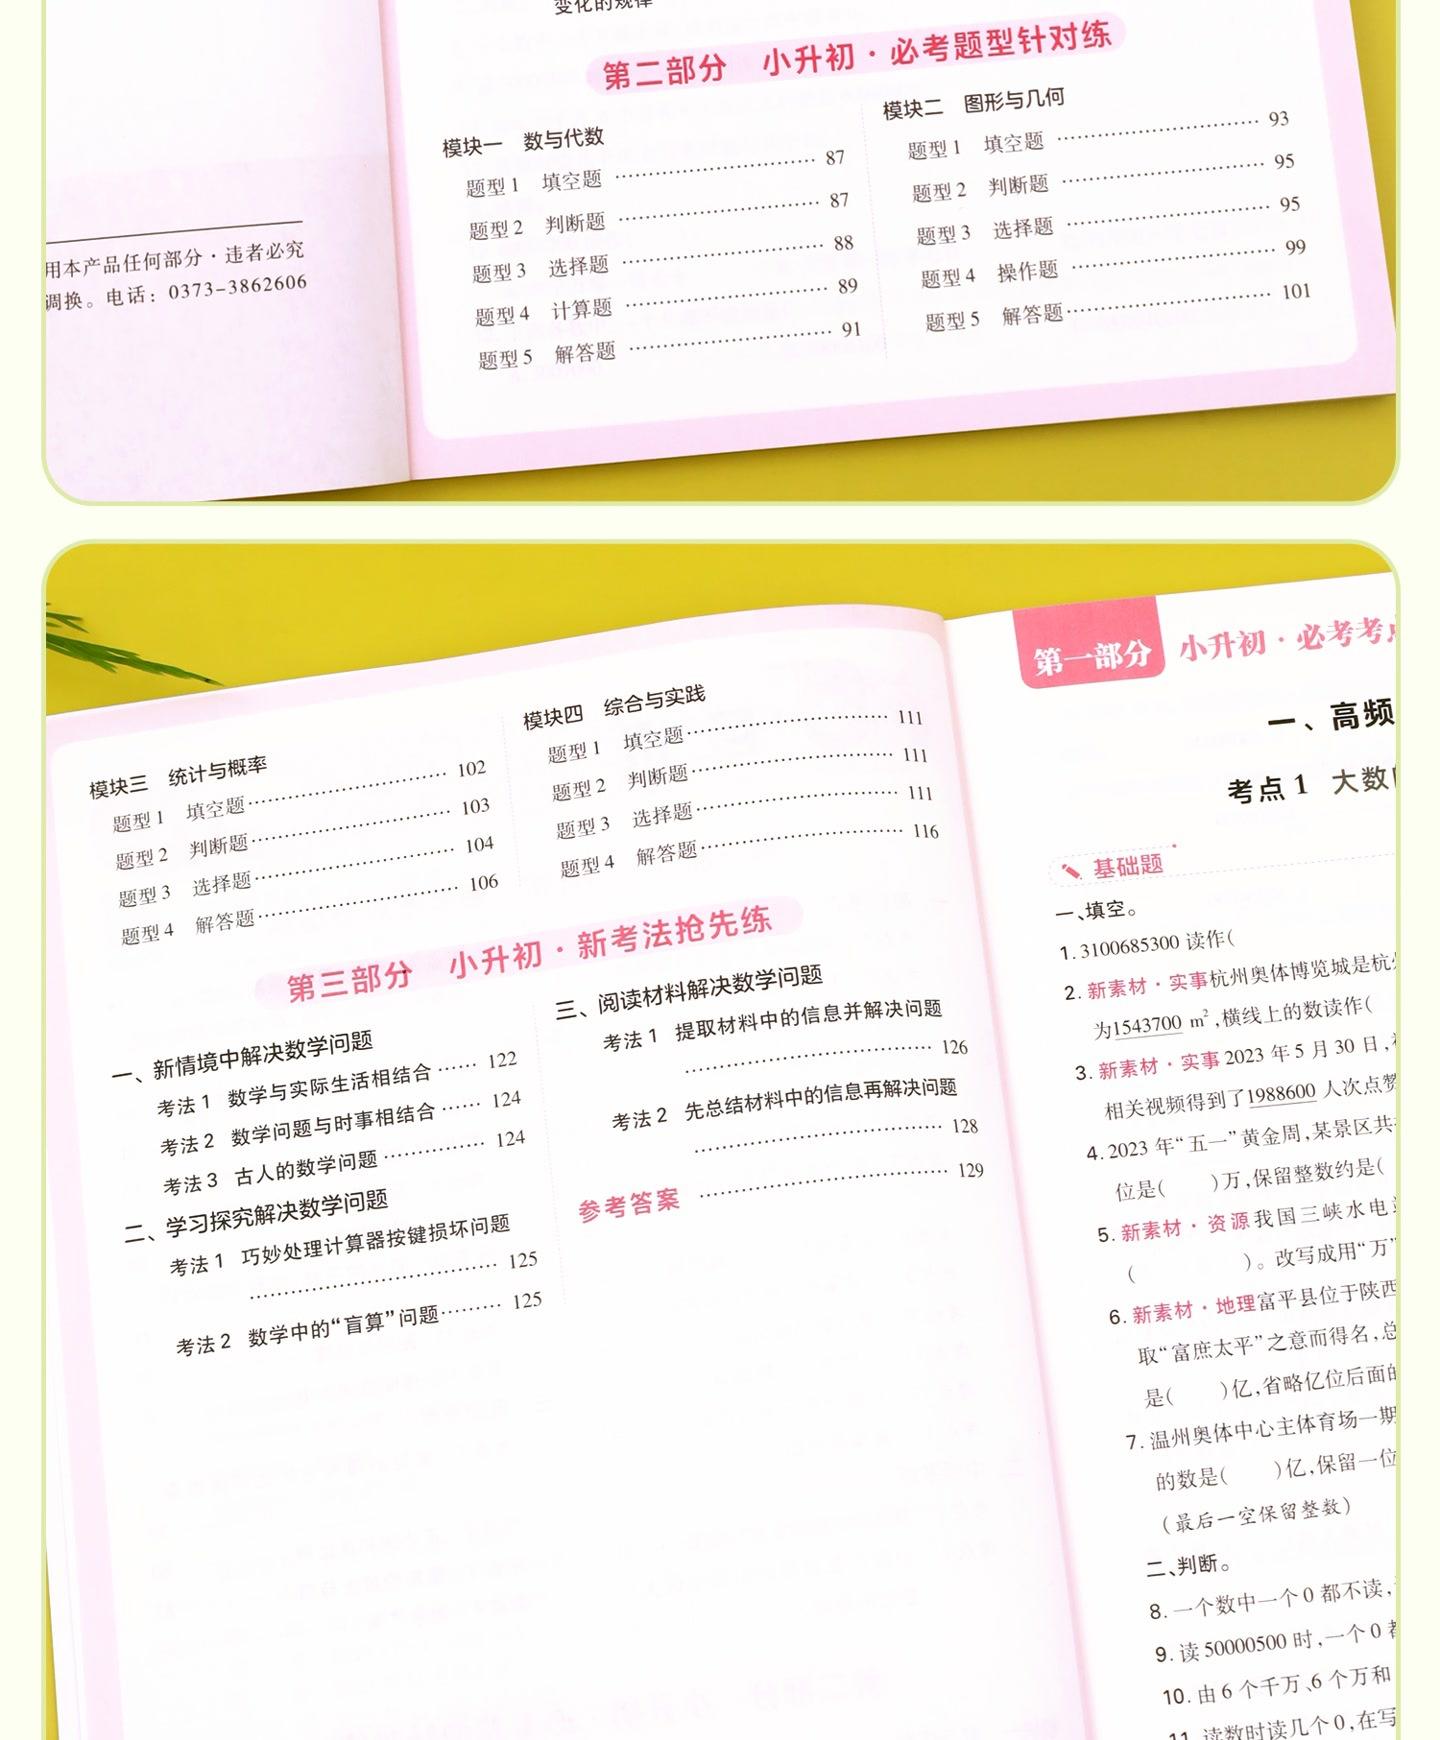 变化的规律
第二部分 小升初·必考题型针对练
模块一 数与代数
题型1 填空题 …… 87
题型2 判断题 …… 87
题型3 选择题 …… 88
题型4 计算题 …… 89
题型5 解答题 …… 91
模块二 图形与几何
题型1 填空题 …… 93
题型2 判断题 …… 95
题型3 选择题 …… 95
题型4 操作题 …… 99
题型5 解答题 …… 101
用本产品任何部分·违者必究
调换。电话：0373-3862606
模块三 统计与概率
题型1 填空题 …… 102
题型2 判断题 …… 103
题型3 选择题 …… 104
题型4 解答题 …… 106
模块四 综合与实践
题型1 填空题 …… 111
题型2 判断题 …… 111
题型3 选择题 …… 111
题型4 解答题 …… 116
第三部分 小升初·新考法抢先练
一、新情境中解决数学问题
考法1 数学与实际生活相结合 …… 122
考法2 数学问题与时事相结合 …… 124
考法3 古人的数学问题 …… 124
二、学习探究解决数学问题
考法1 巧妙处理计算器按键损坏问题
…… 125
考法2 数学中的“盲算”问题 …… 125
三、阅读材料解决数学问题
考法1 提取材料中的信息并解决问题
…… 126
考法2 先总结材料中的信息再解决问题
…… 128
参考答案 …… 129
第一部分 小升初·必考考
一、高频
考点1 大数
基础题
一、填空。
1. 3100685300 读作(
2. 新素材·实事 杭州奥体博览城是杭
为1543700 m²,横线上的数读作(
3. 新素材·实事 2023 年 5 月 30 日,
相关视频得到了1988600 人次点赞
4. 2023 年“五一”黄金周,某景区共
位是( )万,保留整数约是(
5. 新素材·资源 我国三峡水电
( )。改写成用“万”
6. 新素材·地理 富平县位于陕西
取“富庶太平”之意而得名,总
是( )亿,省略亿位后面的
7. 温州奥体中心主体育场一期
的数是( )亿,保留一位
(最后一空保留整数)
二、判断。
8. 一个数中一个0 都不读,
9. 读 50000500 时,一个 0 都
10. 由 6 个千万、6 个万和
11. 读数时读几个0,在写